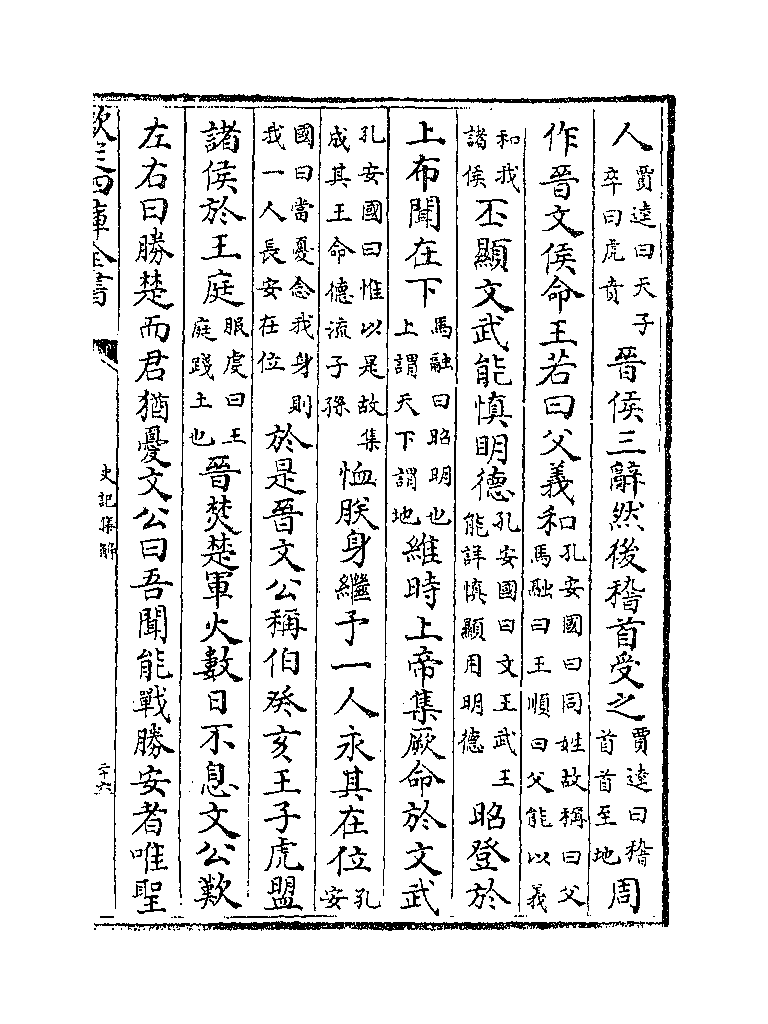 人賈逵曰天子卒曰虎賁晉侯三辭然後稽首受之賈逵曰稽首首至地周
作晉文侯命王若曰父義和孔安國曰同姓故稱曰父馬融曰王順曰父能以義
和我諸侯丕顯文武能慎明德孔安國曰文王武王能詳慎顯用明德昭登於
上布聞在下馬融曰昭明也上謂天下謂地維時上帝集厥命於文武
孔安國曰惟以是故集成其王命德流子孫恤朕身繼予一人永其在位孔安
國曰當憂念我身則我一人長安在位於是晉文公稱伯癸亥王子虎盟
諸侯於王庭服虔曰王庭踐土也晉焚楚軍火數日不息文公歎
左右曰勝楚而君猶憂文公曰吾聞能戰勝安者唯聖
欽定四庫全書
史記集解